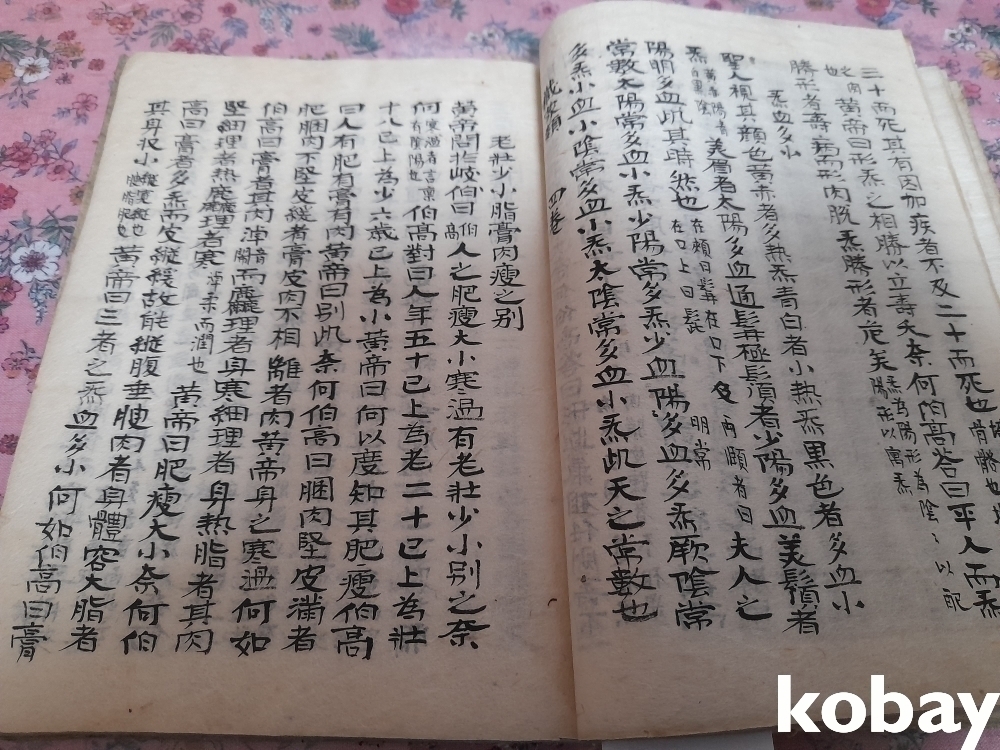 三十而死其有因加疾者不及二十而死也
也 黄帝曰形炁之相勝以立壽夭奈何伯高答曰平人而炁
勝形者壽病而形肉脫炁勝形者死矣 炁為陽形為陰
炁血多小
聖人視其顔色黄赤者多熱炁青白者小熱炁黒色者多血小
炁 美眉者太陽多血通髯極鬚者少陽多血美鬚者
陽明多血此其時然也 在頰曰髯在口下及兩頤者曰 夫人之
在口上曰髭
常數太陽常多血小炁少陽常多炁少血陽明常多血多炁厥陰常
多炁小血小陰常多血小炁太陰常多血小炁此天之常數也
四卷
老壯少小脂膏肉瘦之别
黄帝問於岐伯曰 伯高 人之肥瘦大小寒温有老壯少小别之奈
何 伯高對曰人年五十已上為老二十已上為壯
十八已上為少六歲已上為小黄帝曰何以度知其肥瘦伯高
曰人有肥有膏有肉黄帝曰别此奈何伯高曰䐃肉堅皮滿者
肥䐃肉不堅皮緩者膏皮肉不相離者肉黄帝身之寒温何如
伯高曰膏者其肉淖而麤理者身寒細理者身熱脂者其肉
堅細理者熱麤理者寒 淖柔而潤也 黄帝曰肥瘦大小奈何伯
高曰膏者多炁而皮縱緩故能縱腹垂腴肉者身體容大脂者
其身收小 黄帝曰三者之炁血多小何如伯高曰膏
kobay